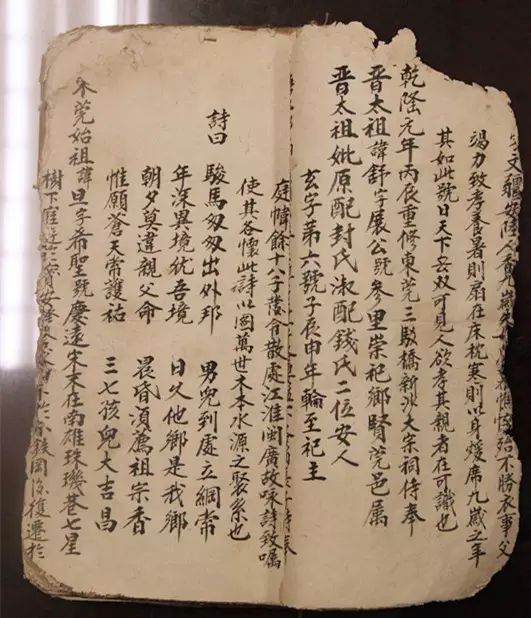 文彊安陸人香九歲失憔悴殆不勝衣事父
竭力致孝養暑則扇在床枕寒則以身煖席九歲之年
其如此號曰天下無双可見人欲孝其親者在可識也
乾隆元年丙辰重修東莞三駁橋新沙大宗祠侍奉
晋太祖諱舒字展公號參里崇祀鄉賢莞邑属
晋太祖妣原配封氏淑配錢氏二位安人
玄字第六號子辰申年輪至祀主
庭幃餘十八子蓋令散處江淮閩廣故咏詩致嘱
使其各懷此詩以固萬世木本水源之聚系也
詩曰
駿馬匆匆出外邦 男兒到處立綱常
年深異境犹吾境 日久他鄉是我鄉
朝夕莫違親父命 晨昏須薦祖宗香
惟願蒼天常護祐 三七孩兒大吉昌
東莞始祖諱旦字希聖號慶遠宋末在南雄珠璣巷七星
樹下鉄岡後復遷於